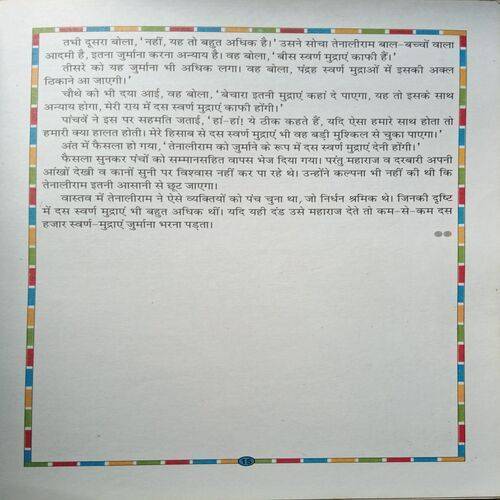 तभी दूसरा बोला, 'नहीं, यह तो बहुत अधिक है।' उसने सोचा तेनालीराम बाल-बच्चों वाला
आदमी है, इतना जुर्माना करना अन्याय है। वह बोला, 'बीस स्वर्ण मुद्राएं काफी हैं।'
तीसरे को यह जुर्माना भी अधिक लगा। वह बोला, पंद्रह स्वर्ण मुद्राओं में इसकी अक्ल
ठिकाने आ जाएगी।'
चौथे को भी दया आई, वह बोला, 'बेचारा इतनी मुद्राएं कहां दे पाएगा, यह तो इसके साथ
अन्याय होगा, मेरी राय में दस स्वर्ण मुद्राएं काफी होंगी।'
पांचवें ने इस पर सहमति जताई, 'हां-हां! ये ठीक कहते हैं, यदि ऐसा हमारे साथ होता तो
हमारी क्या हालत होती। मेरे हिसाब से दस स्वर्ण मुद्राएं भी वह बड़ी मुश्किल से चुका पाएगा।'
अंत में फैसला हो गया, 'तेनालीराम को जुर्माने के रूप में दस स्वर्ण मुद्राएं देनी होंगी।'
फैसला सुनकर पंचों को सम्मानसहित वापस भेज दिया गया। परंतु महाराज व दरबारी अपनी
आंखों देखी व कानों सुनी पर विश्वास नहीं कर पा रहे थे। उन्होंने कल्पना भी नहीं की थी कि
तेनालीराम इतनी आसानी से छूट जाएगा।
वास्तव में तेनालीराम ने ऐसे व्यक्तियों को पंच चुना था, जो निर्धन श्रमिक थे। जिनकी दृष्टि
में दस स्वर्ण मुद्राएं भी बहुत अधिक थीं। यदि यही दंड उसे महाराज देते तो कम-से-कम दस
हजार स्वर्ण-मुद्राएं जुर्माना भरना पड़ता।
15